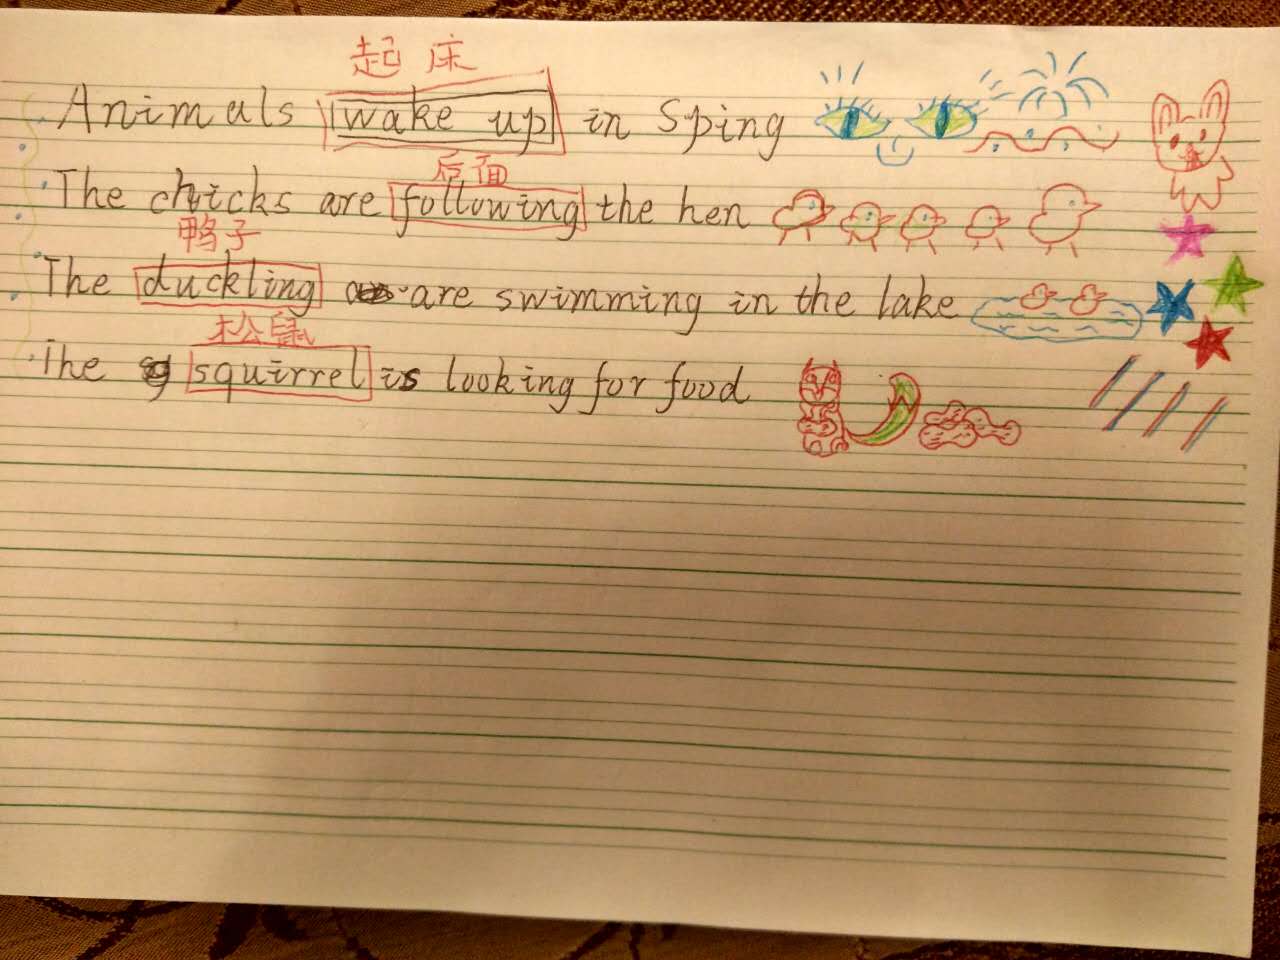 起床
Animals wake up in Sping
后面
The chicks are following the hen
鸭子
The duckling are swimming in the lake
松鼠
The squirrel is looking for food